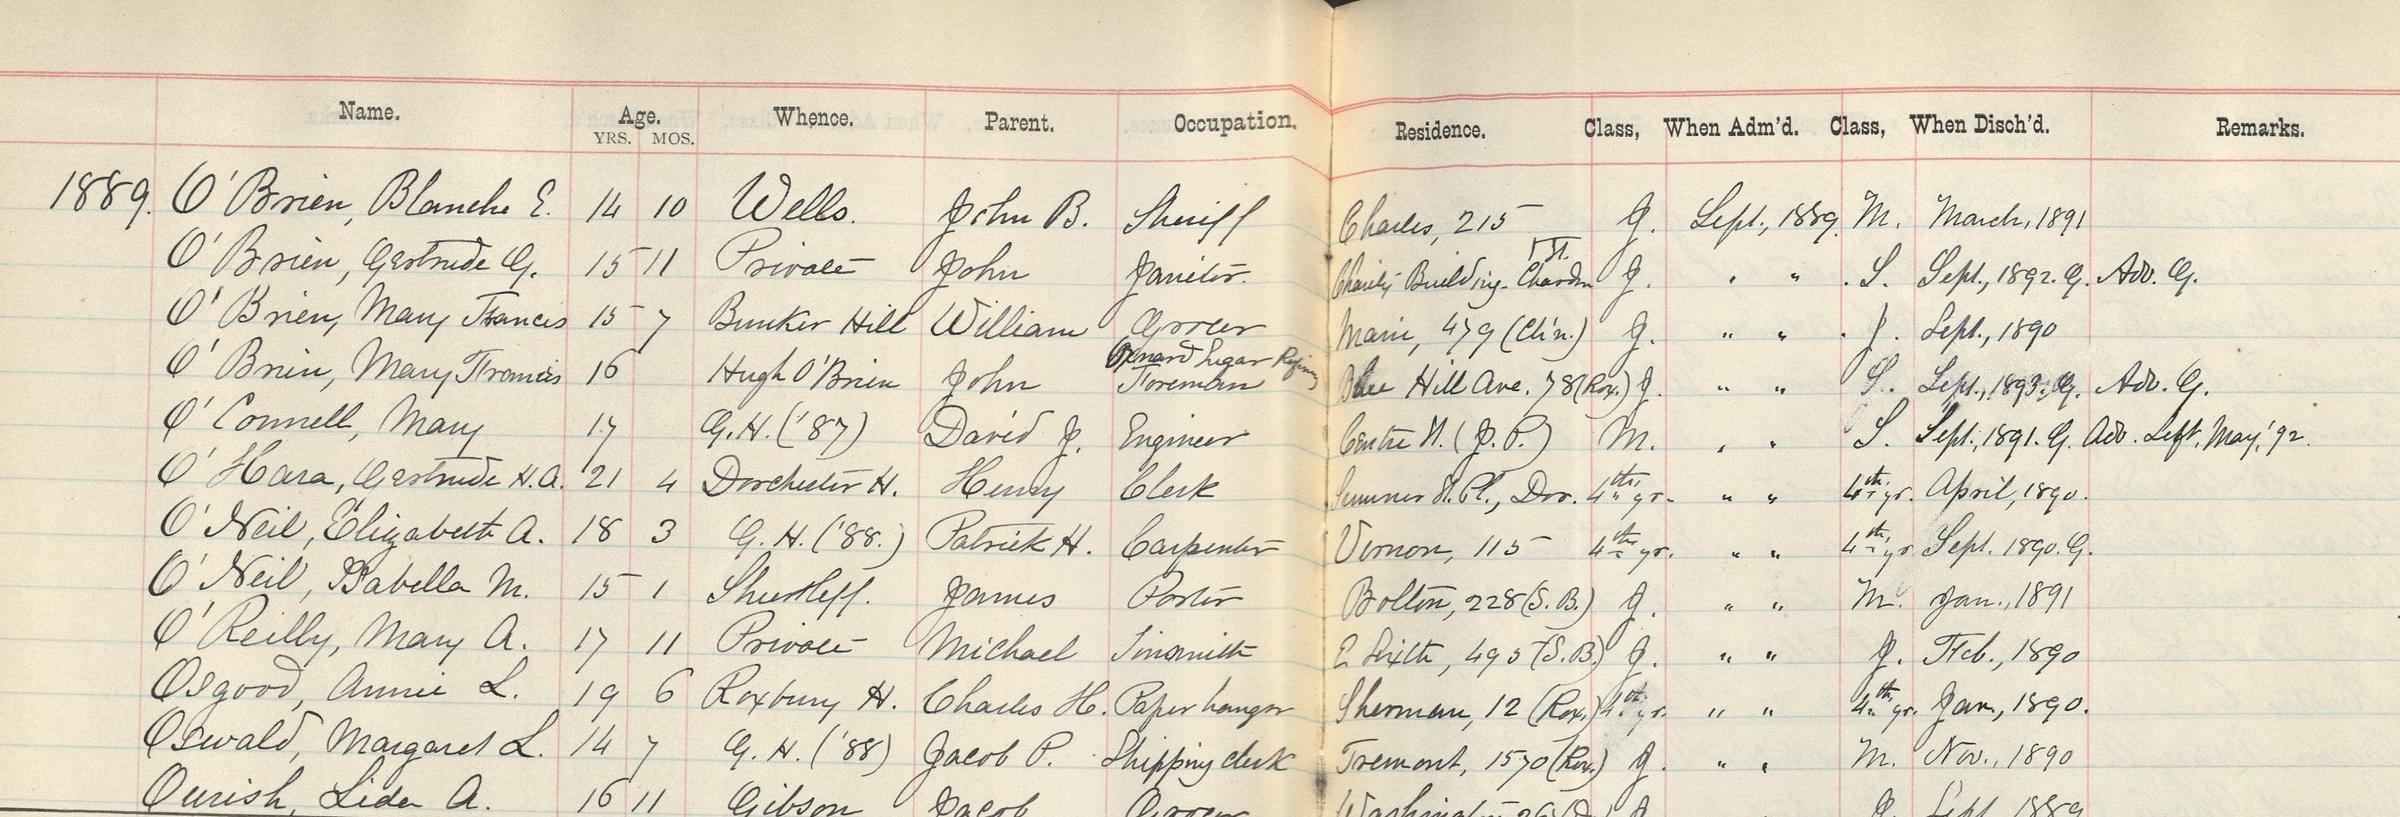 Name. Age. Whence. Parent. Occupation. Residence. Class, When Adm'd. Class, When Disch'd. Remarks.
YRS. MOS.
1889. O'Brien, Blanche E. 14 10 Wells. John B. Sheriff Charles, 215 J. Sept., 1889. M. March, 1891
O'Brien, Gertrude G. 15 11 Private John Janitor. Charity Building. Chardon St. J. " " S. Sept., 1892. G. Adv. G.
O'Brien, Mary Francis 15 7 Bunker Hill William Grocer Main, 479 (Ch'n.) J. " " J. Sept., 1890
O'Brien, Mary Francis 16 Hugh O'Brien John Foreman Sugar Blue Hill Ave. 78 (Rox.) J. " " S. Sept., 1893. G. Adv. G.
O'Connell, Mary 17 G. H. ('87) David J. Engineer Centre St. (J. P.) M. " " S. Sept., 1891. G. Adv. Left, May, '92.
O'Hara, Gertrude H. A. 21 4 Dorchester H. Henry Clerk Sumner St. Pl., Dor. 4th yr. " " 4th yr. April, 1890.
O'Neil, Elizabeth A. 18 3 G. H. ('88.) Patrick H. Carpenter Vernon, 115 4th yr. " " 4th yr. Sept. 1890. G.
O'Neil, Isabella M. 15 1 Shurtleff. James Porter Bolton, 228 (S. B.) J. " " M. Jan., 1891
O'Reilly, Mary A. 17 11 Private Michael Tinsmith E. Sixth, 495 (S. B.) J. " " J. Feb., 1890
Osgood, Annie L. 19 6 Roxbury H. Charles H. Paper hanger Sherman, 12 (Rox.) 4th yr. " " 4th yr. Jan., 1890.
Oswald, Margaret L. 14 7 G. H. ('88) Jacob P. Shipping clerk Tremont, 1570 (Rox.) J. " " M. Nov., 1890
Ourish, Leda A. 16 11 Gibson Jacob Grocer Washington J. Sept. 1889